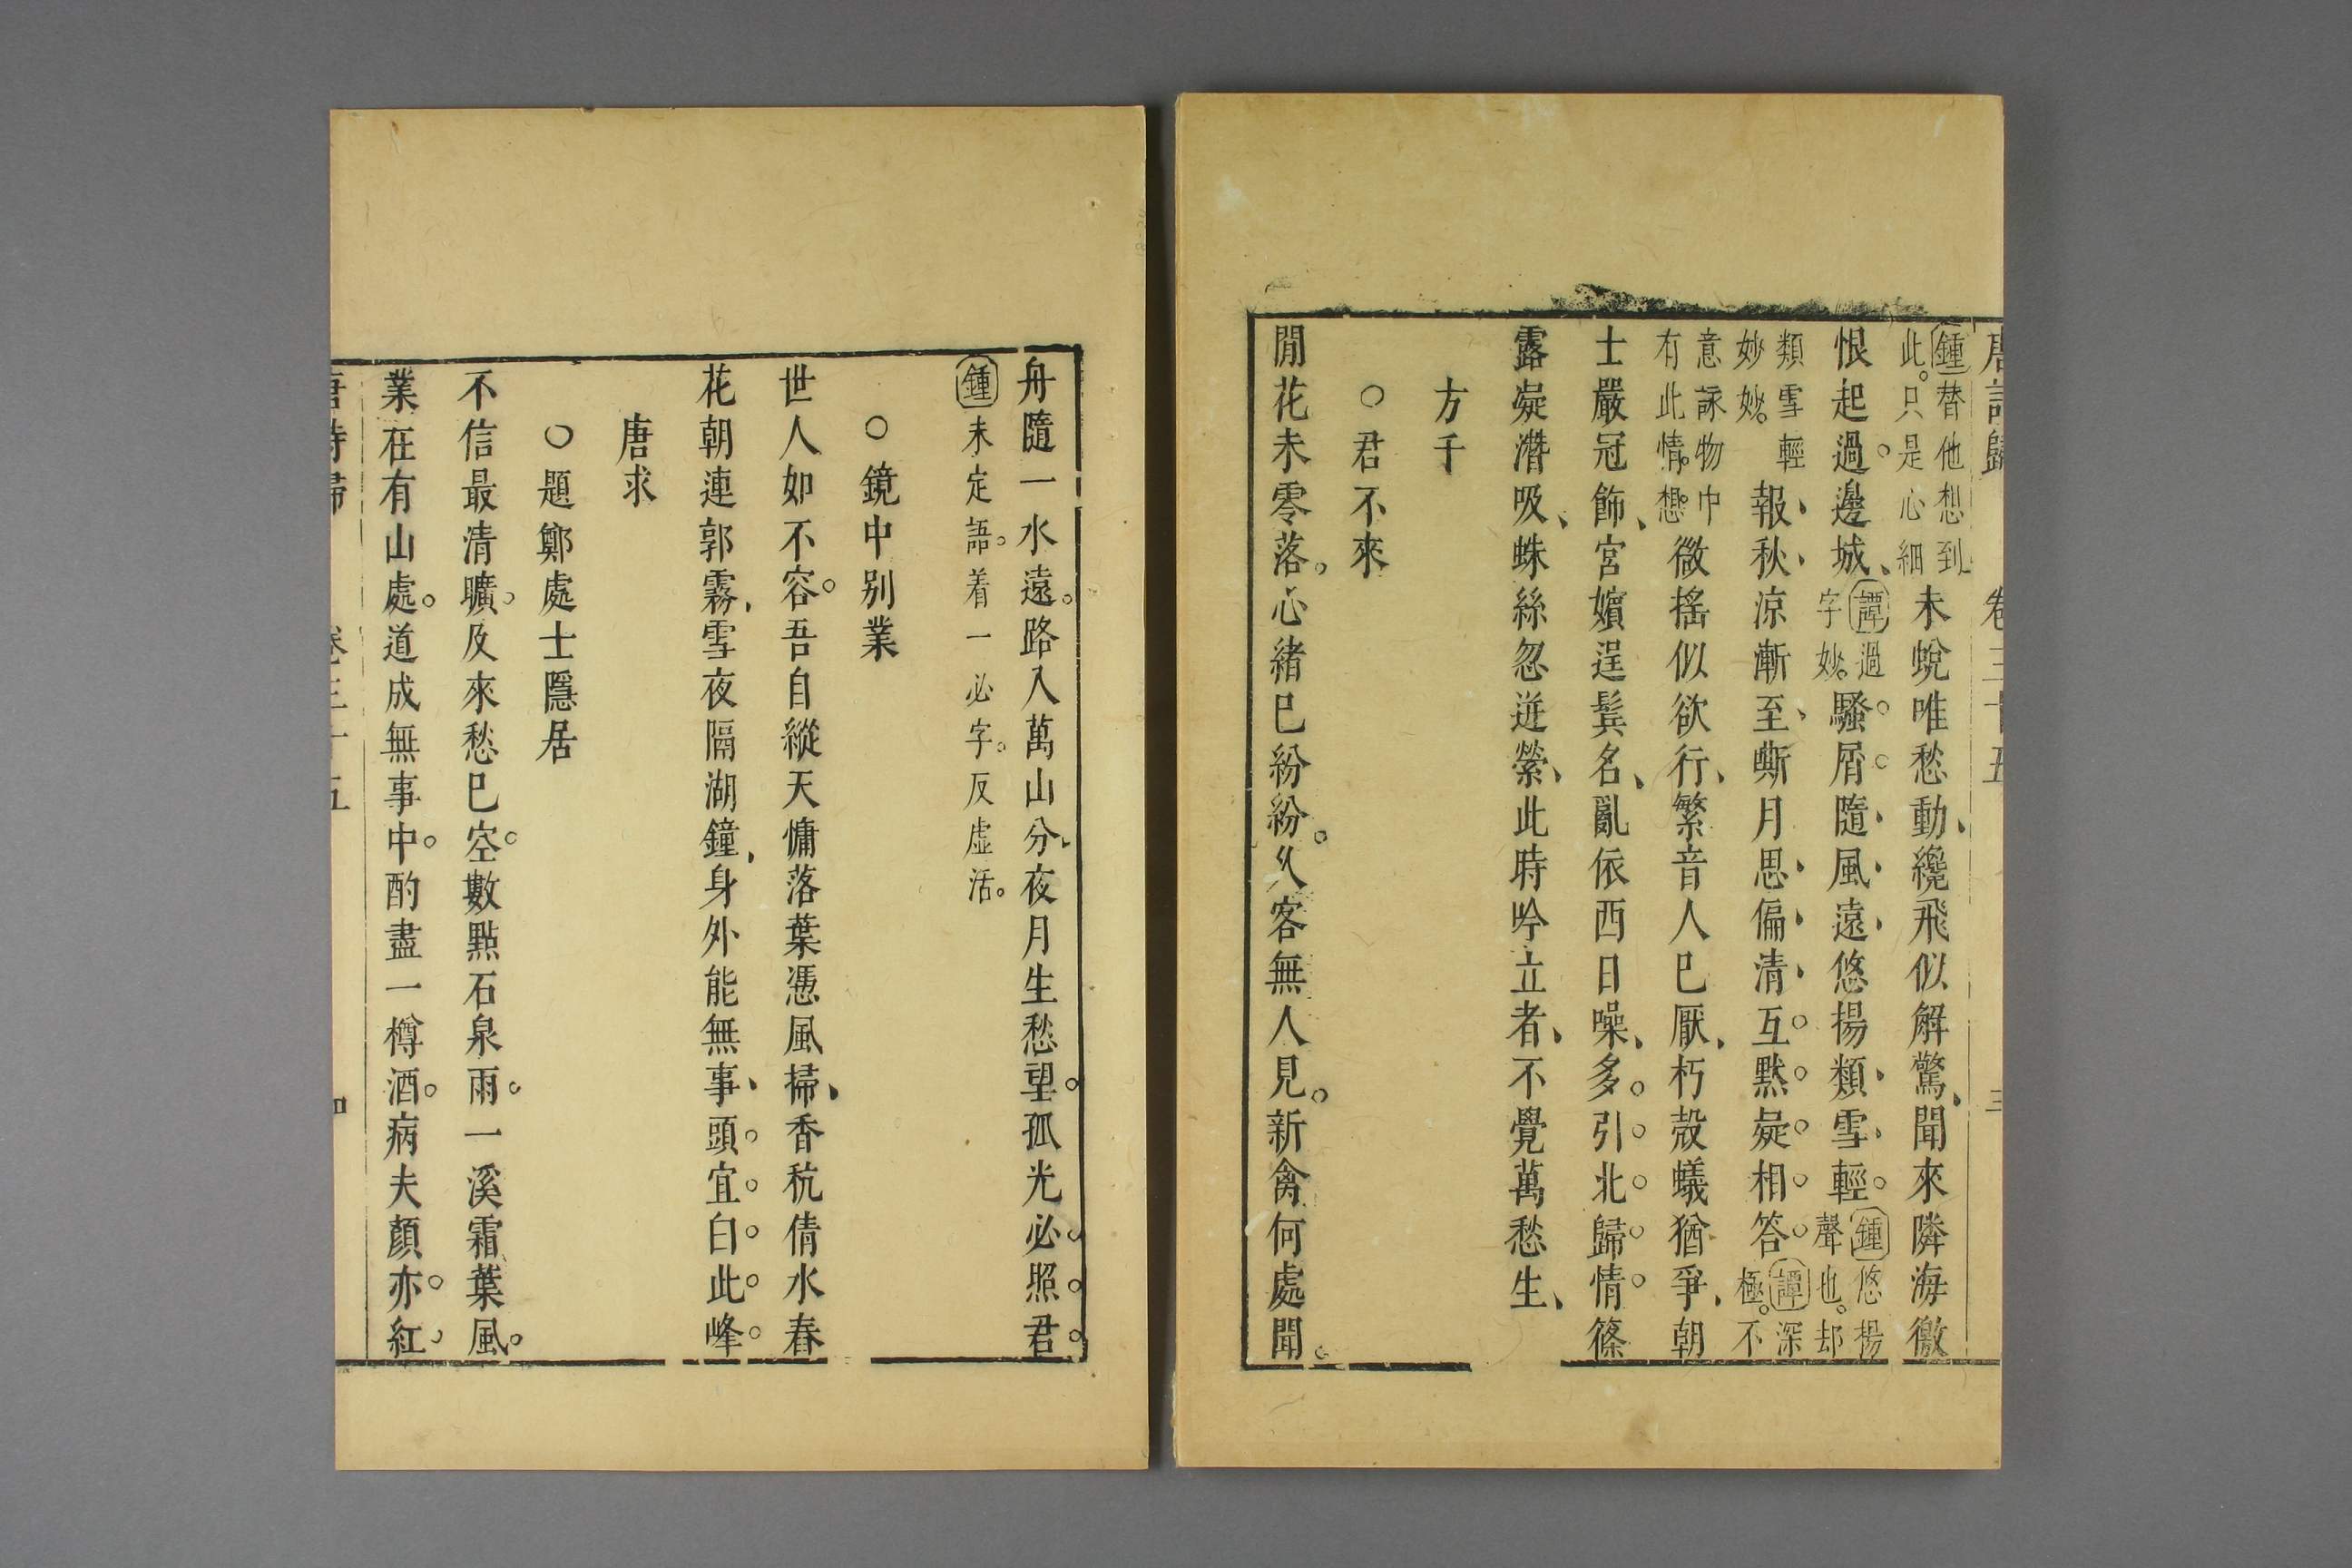 唐詩歸 卷三十五 三
鍾替他想到
此。只是心細
未蛻唯愁動、纔飛似解驚、聞來隣海徼
恨起過。邊城、
譚過
字妙。
騷。屑。隨、風、遠、悠揚類、雪、輕。
鍾悠揚
聲也。却
類雪輕
妙妙。
報、秋、涼漸至、嘶月思、偏、清、互。黙。嶷。相。答。
譚深
極。不
意詠物中
有此情。想。
微搖似欲行、繁音人已厭、朽殻蟻猶爭、朝
士嚴冠飾、宮嬪逞鬓名、亂依西日噪、多。引。北。歸。情。篠
露凝潛吸、蛛絲忽迸縈、此時吟立者、不覺萬愁生、
方干
○君不來
閒花未零落。心緒巳紛紛。久客無人見。新禽何處聞。
舟隨一水遠。路入萬山分、夜月生愁望。孤光必。照。君。
鍾未定語。着一必字。反虛活。
○鏡中別業
世人如不容。吾自縱天慵落葉憑風掃、香秔倩水舂
花朝連郭霧、雪夜隔湖鐘、身外能無事、頭。宜。白。此。峰。
唐求
○題鄭處士隱居
不信最清曠。及來愁巳空。數點石泉雨。一溪霜葉風。
業在有山處。道成無事中。酌盡一樽酒。病夫顏亦。紅、
唐詩歸 卷三十五